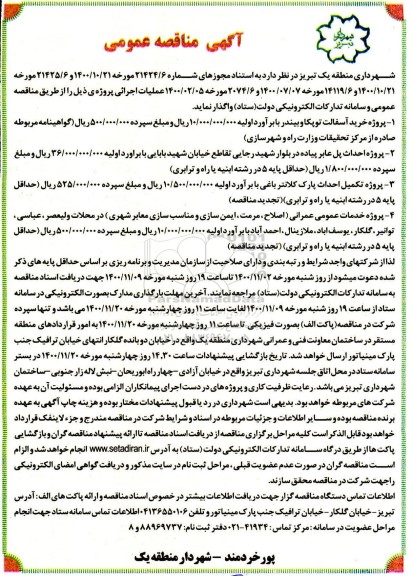 آگهی مناقصه عمومی
شهرداری تبریز
شهرداری منطقه یک تبریز در نظر دارد به استناد مجوزهای شماره ۲۱۴۲۴/۶ مورخه ۱۴۰۰/۱۰/۲۱ و ۲۱۴۲۵/۶ مورخه
۱۴۰۰/۱۰/۲۱ و ۱۴۱۱۹/۶ مورخه ۱۴۰۰/۰۷/۰۷ و ۲۰۷۴/۶ مورخه ۱۴۰۰/۰۲/۰۵ عملیات اجرائی پروژه‌ی ذیل را از طریق مناقصه
عمومی و سامانه تدارکات الکترونیکی دولت (ستاد) واگذار نماید.
۱- پروژه خرید آسفالت توپکا و بیندر با برآورد اولیه ۱۰/۰۰۰/۰۰۰/۰۰۰ ریال و مبلغ سپرده ۵۰۰/۰۰۰/۰۰۰ ریال (گواهینامه مربوطه
صادره از مرکز تحقیقات وزارت راه و شهرسازی)
۲- پروژه احداث پل عابر پیاده در بلوار شهید رجایی تقاطع خیابان شهید بابایی با برآورد اولیه ۳۶/۰۰۰/۰۰۰/۰۰۰ ریال و مبلغ
سپرده ۱/۸۰۰/۰۰۰/۰۰۰ ریال (حداقل پایه ۵ در رشته ابنیه یا راه و ترابری)
۳- پروژه تکمیل احداث پارک کلانتر باغی با برآورد اولیه ۱۰/۵۰۰/۰۰۰/۰۰۰ ریال و مبلغ سپرده ۵۲۵/۰۰۰/۰۰۰ ریال (حداقل
پایه ۵ در رشته ابنیه یا راه و ترابری) (تجدید مناقصه)
۴- پروژه خدمات عمومی عمرانی (اصلاح، مرمت، ایمن سازی و مناسب سازی معابر شهری) در محلات ولیعصر، عباسی،
توانیر، گلکار، یوسف آباد، ملازینال، احمدآباد با برآورد اولیه ۱۰/۰۰۰/۰۰۰/۰۰۰ ریال و مبلغ سپرده ۵۰۰/۰۰۰/۰۰۰ ریال (حداقل
پایه ۵ در رشته ابنیه یا راه و ترابری) (تجدید مناقصه)
لذا از شرکتهای واجد شرایط و رتبه بندی و دارای صلاحیت از سازمان مدیریت و برنامه ریزی بر اساس حداقل پایه های ذکر
شده دعوت میشود از روز شنبه مورخه ۱۴۰۰/۱۱/۰۲ تا ساعت ۱۹ روز شنبه مورخه ۱۴۰۰/۱۱/۰۹ جهت دریافت اسناد مناقصه
به سامانه تدارکات الکترونیکی دولت (ستاد) مراجعه نمایند. آخرین مهلت بارگذاری مدارک بصورت الکترونیکی در سامانه
ستاد از ساعت ۱۹ روز شنبه مورخه ۱۴۰۰/۱۱/۰۹ لغایت ساعت ۱۱ روز چهارشنبه مورخه ۱۴۰۰/۱۱/۲۰ می باشد و تنها سپرده
شرکت در مناقصه (پاکت الف) بصورت فیزیکی تا ساعت ۱۱ روز چهارشنبه مورخه ۱۴۰۰/۱۱/۲۰ به امور قراردادهای منطقه
مستقر در ساختمان معاونت فنی و عمرانی شهرداری منطقه یک واقع در خیابان دوبانده گلکار انتهای خیابان ترافیک جنب
پارک مینیاتور ارسال خواهد شد. تاریخ بازگشایی پیشنهادات ساعت ۱۴,۳۰ روز چهارشنبه مورخه ۱۴۰۰/۱۱/۲۰ در بستر
سامانه ستاد در محل اتاق جلسه شهرداری تبریز واقع در خیابان آزادی - چهارراه ابوریحان - نبش لاله زار جنوبی - ساختمان
شهرداری تبریز می باشد. رعایت ظرفیت کاری و پروژه های در دست اجرای پیمانکاران الزامی بوده و مسئولیت آن به عهده
شرکت های مربوطه خواهد بود. بدیهی است شهرداری در رد یا قبول پیشنهادات مختار بوده و هزینه چاپ آگهی به عهده
برنده مناقصه بوده و سایر اطلاعات و جزئیات مربوطه در اسناد و شرایط شرکت در مناقصه مندرج و جزء لاینفک قرارداد
خواهد بود قابل الذکر است کلیه مراحل برگزاری مناقصه از دریافت اسناد مناقصه تا ارائه پیشنهاد مناقصه گران و بازگشایی
پاکت ها از طریق درگاه سامانه تدارکات الکترونیکی دولت (ستاد) به آدرس www.setadiran.ir انجام خواهد شد و الزام
است مناقصه گران در صورت عدم عضویت قبلی، مراحل ثبت نام در سایت مذکور و دریافت گواهی امضای الکترونیکی
را جهت شرکت در مناقصه محقق سازند.
اطلاعات تماس دستگاه مناقصه گزار جهت دریافت اطلاعات بیشتر در خصوص اسناد مناقصه و ارائه پاکت های الف: آدرس
تبریز - خیابان گلکار - خیابان ترافیک جنب پارک مینیاتور و تلفن ۰۴۱۳۶۵۵۰۱۰۶ اطلاعات تماس سامانه ستاد جهت انجام
مراحل عضویت در سامانه: مرکز تماس: ۴۱۹۳۴-۰۲۱ دفتر ثبت نام: ۸۸۹۶۹۷۳۷ و ۸
پورخردمند - شهردار منطقه یک